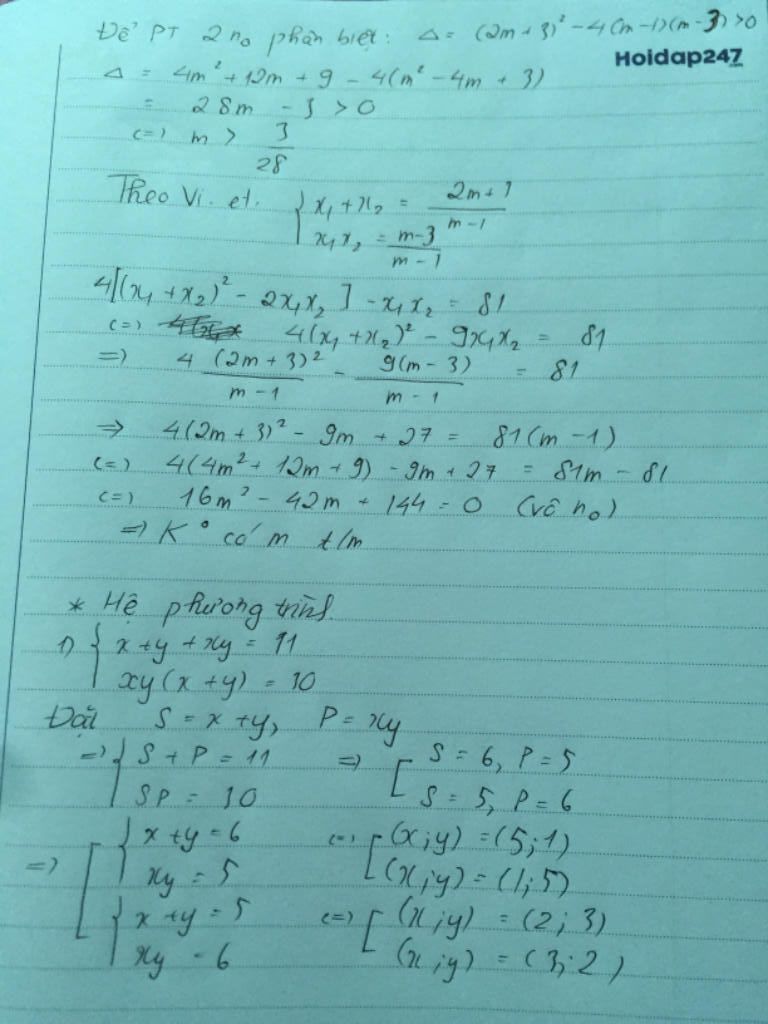 Để PT 2 no phân biệt: Δ = (2m + 3)² - 4(m-1)(m-3) > 0
Hoidap247
Δ = 4m² + 12m + 9 - 4(m² - 4m + 3)
= 28m - 3 > 0
<=> m > 3/28
Theo Vi. et. { x₁ + x₂ = (2m+1)/(m-1)
x₁x₂ = (m-3)/(m-1)
4[(x₁ + x₂)² - 2x₁x₂] - x₁x₂ = 81
<=> 4(x₁ + x₂)² - 9x₁x₂ = 81
=> 4 (2m + 3)²/(m - 1) - 9(m - 3)/(m - 1) = 81
=> 4(2m + 3)² - 9m + 27 = 81(m - 1)
<=> 4(4m² + 12m + 9) - 9m + 27 = 81m - 81
<=> 16m² - 42m + 144 = 0 (vô no)
=> K° có m t/m
* Hệ phương trình.
1) { x + y + xy = 11
xy (x + y) = 10
Đặt S = x + y, P = xy
=> { S + P = 11 => [ S = 6, P = 5
SP = 10 S = 5, P = 6
=> [ { x + y = 6 <=> [ (x;y) = (5;1)
xy = 5 (x;y) = (1;5)
{ x + y = 5 <=> [ (x;y) = (2; 3)
xy = 6 (x;y) = (3;2)